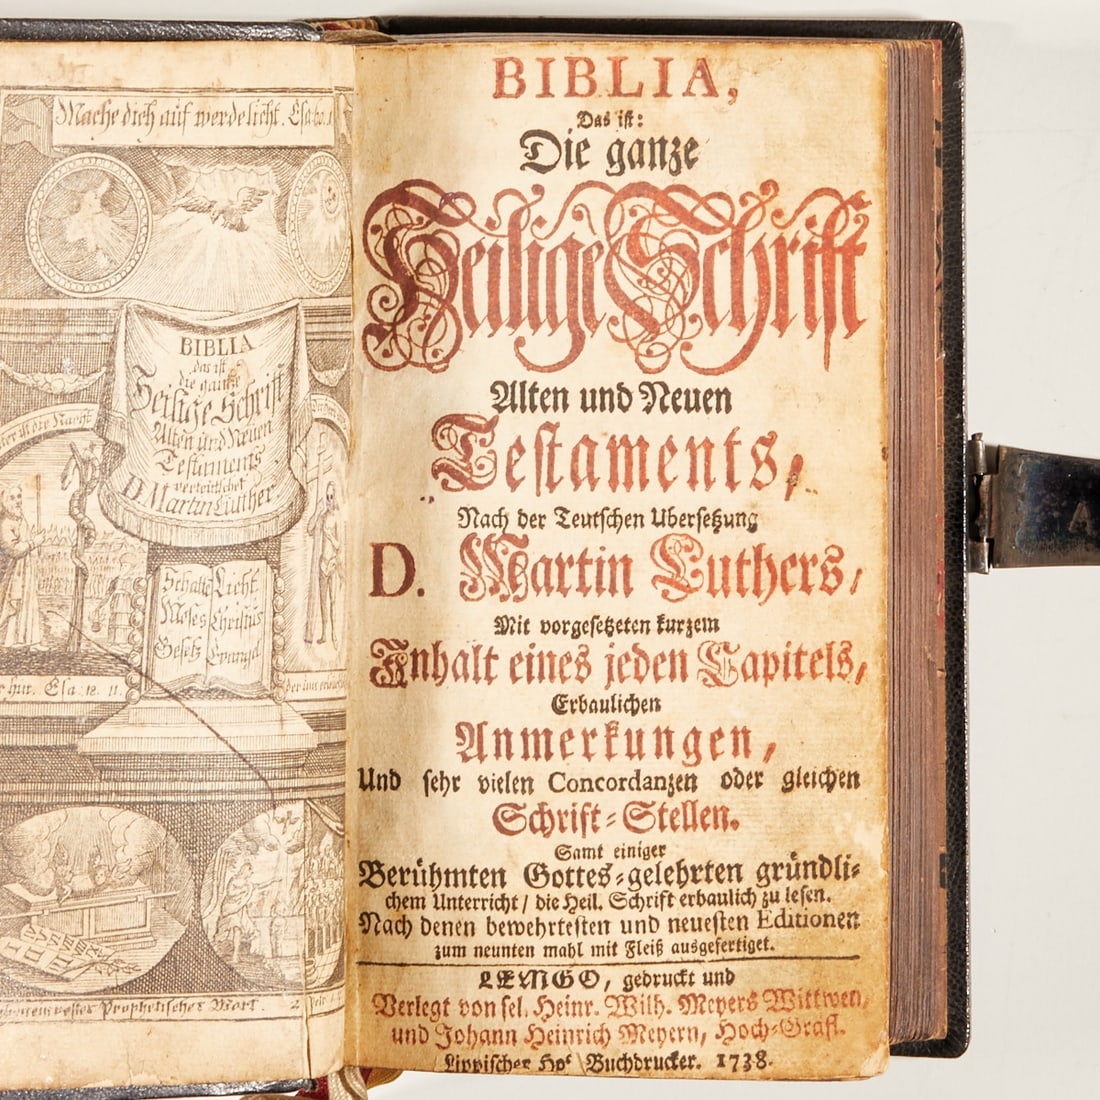 Mache dich auf werde licht. Esa 60. 1
BIBLIA
das ist
die gantze
Heilige Schrifft
Alten und Neuen
Testaments
verteutschet
D. Martin Luther
Schatte Licht
Moses Christus
Gesetz Evangel
hur. Esa. 18. 11.
der inn
festes Prophetisches Wort. 2 Petr. 1
BIBLIA,
Das ist:
Die ganze
Heilige Schrifft
Alten und Neuen
Testaments,
Nach der Teutschen Ubersetzung
D. Martin Luthers,
Mit vorgesetzten kurzem
Inhalt eines jeden Capitels,
Erbaulichen
Anmerkungen,
Und sehr vielen Concordanzen oder gleichen
Schrift-Stellen.
Samt einiger
Berühmten Gottes-gelehrten gründli-
chem Unterricht / die Heil. Schrift erbaulich zu lesen.
Nach denen bewehrtesten und neuesten Editionen
zum neunten mahl mit Fleiß ausgefertiget.
LEMGO, gedruckt und
Verlegt von sel. Heinr. Wilh. Meyers Wittwen,
und Johann Heinrich Meyern, Hoch-Gräfl.
Lippischer Hof Buchdrucker. 1738.
A